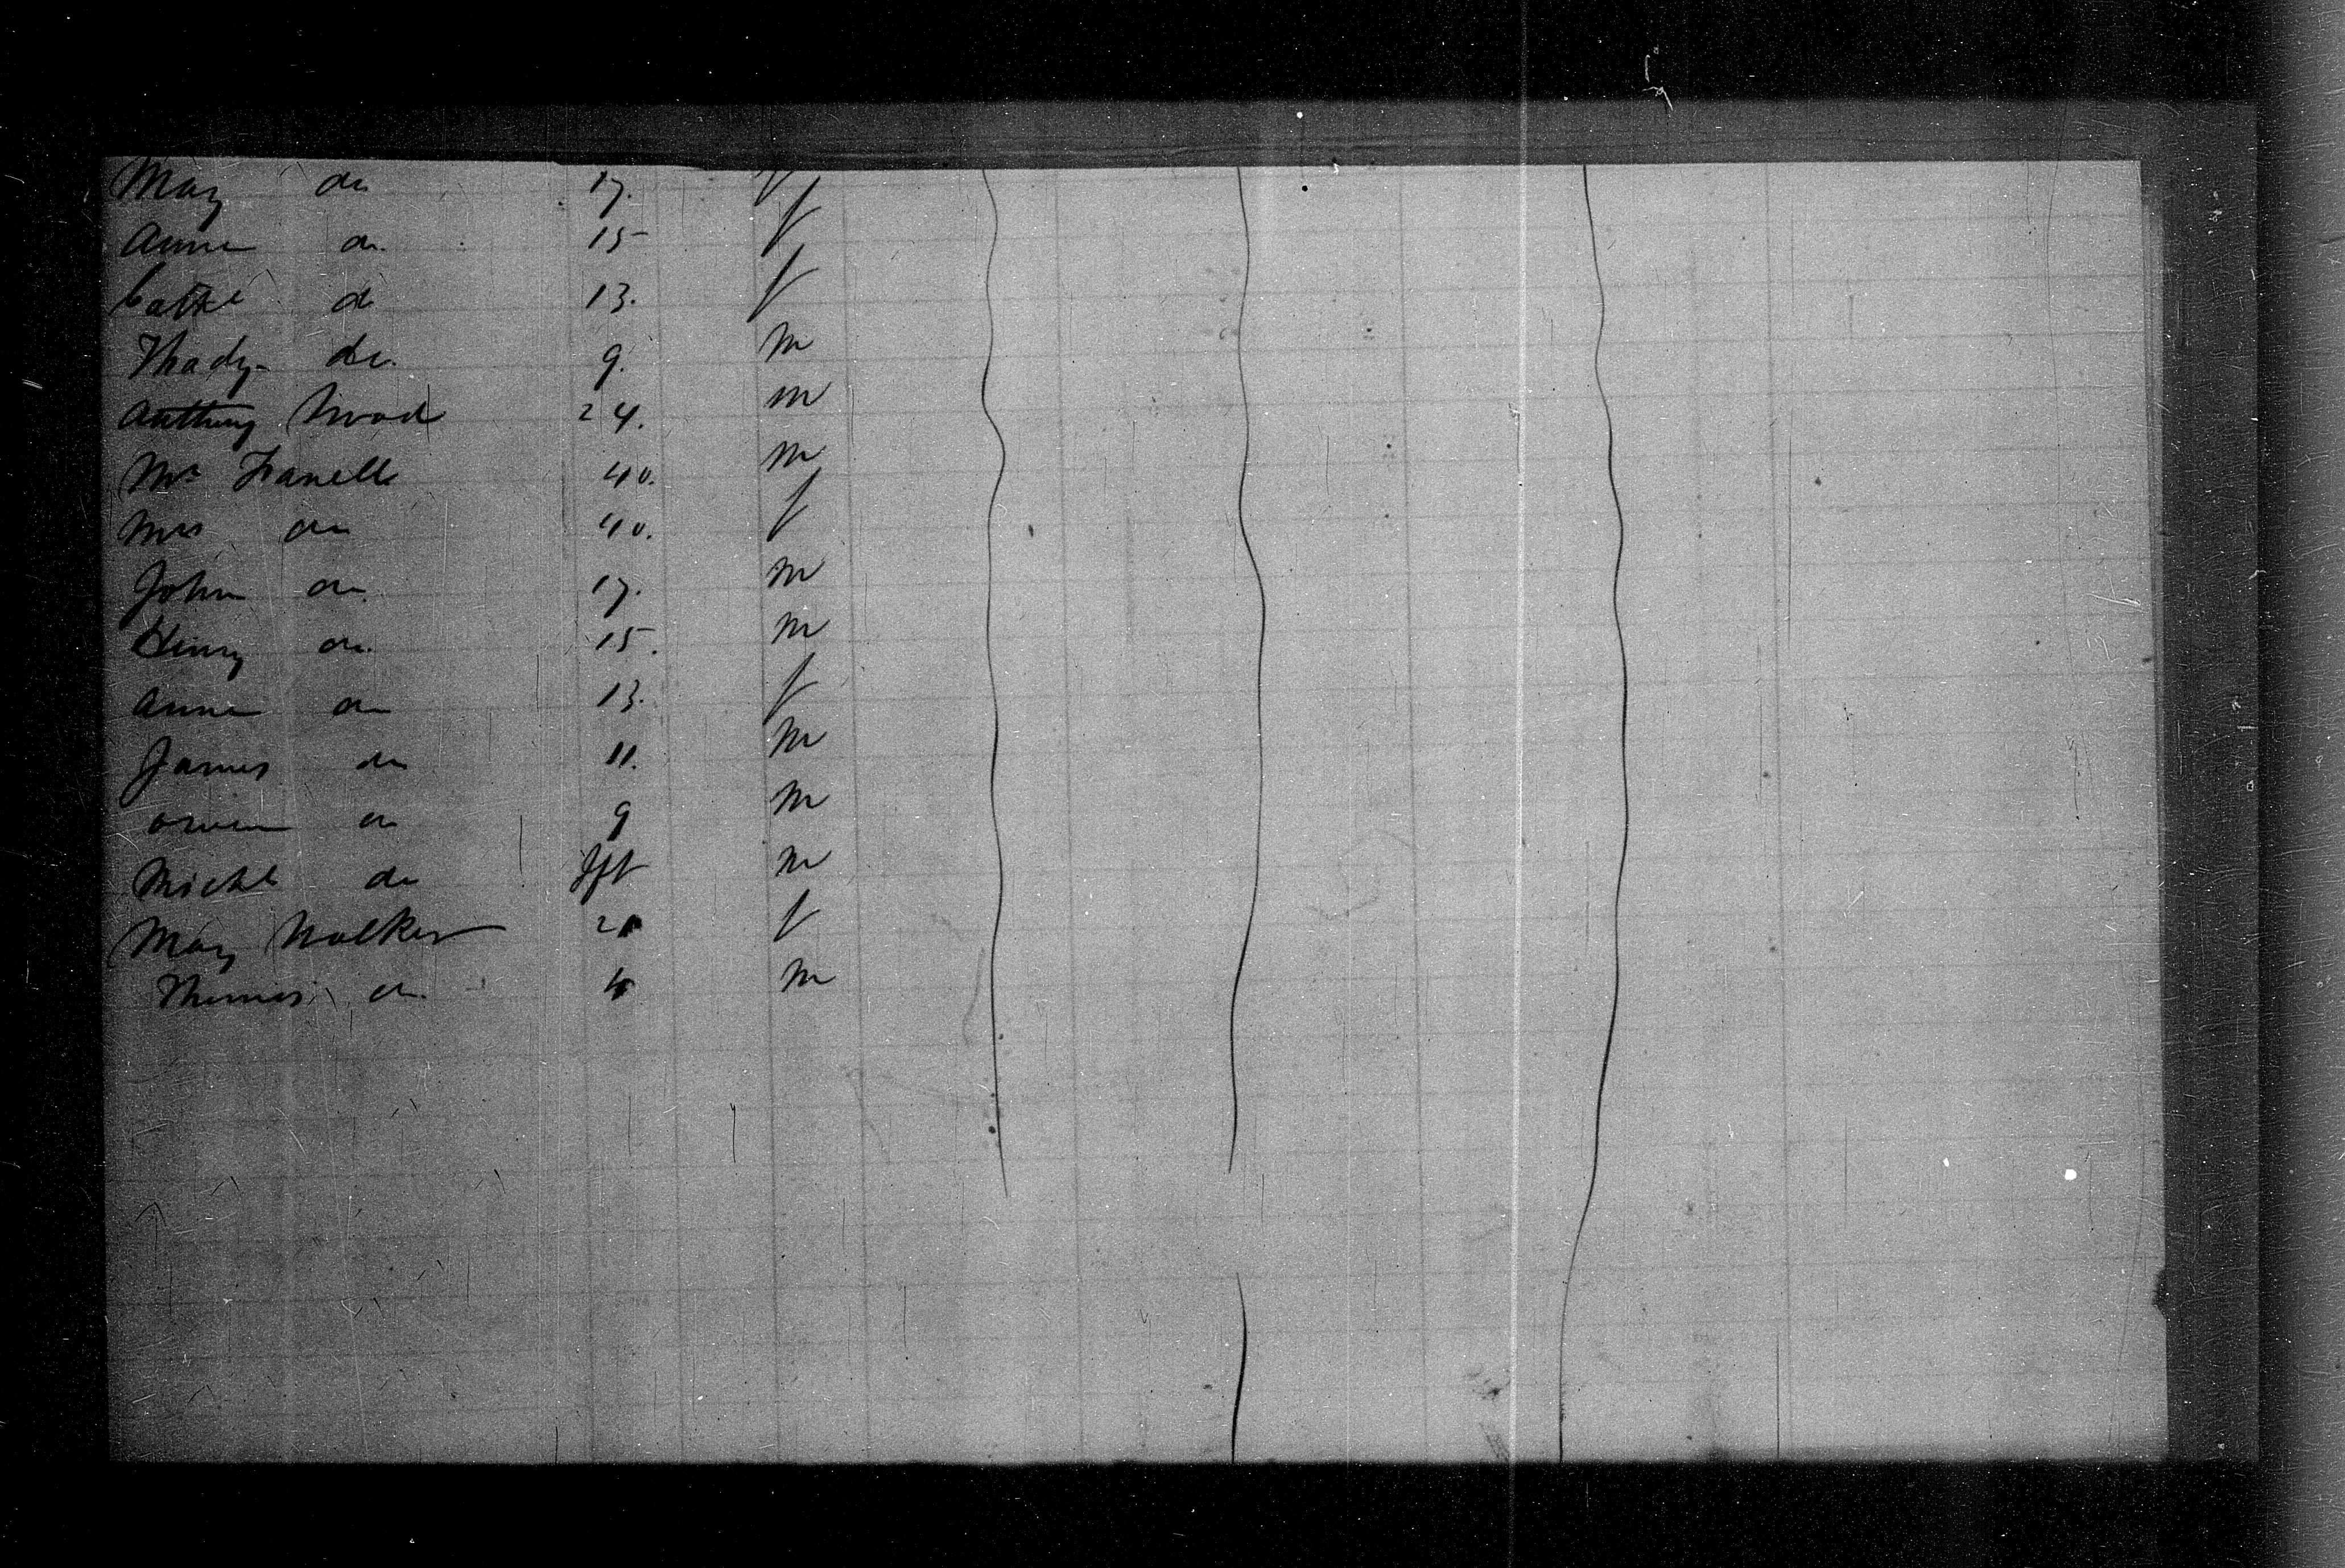 Mary do 17. f
Anne do 15 f
Cathe do 13. f
Thady do. 9. m
Anthony Wood 24. m
Mr Farrell 40. m
Mrs do 40. f
John do. 17. m
Henry do. 15. m
Anne do 13. f
James do 11. m
Owen do 9 m
Michl do Jft m
Mary Walker 21 f
Thomas do. 4 m